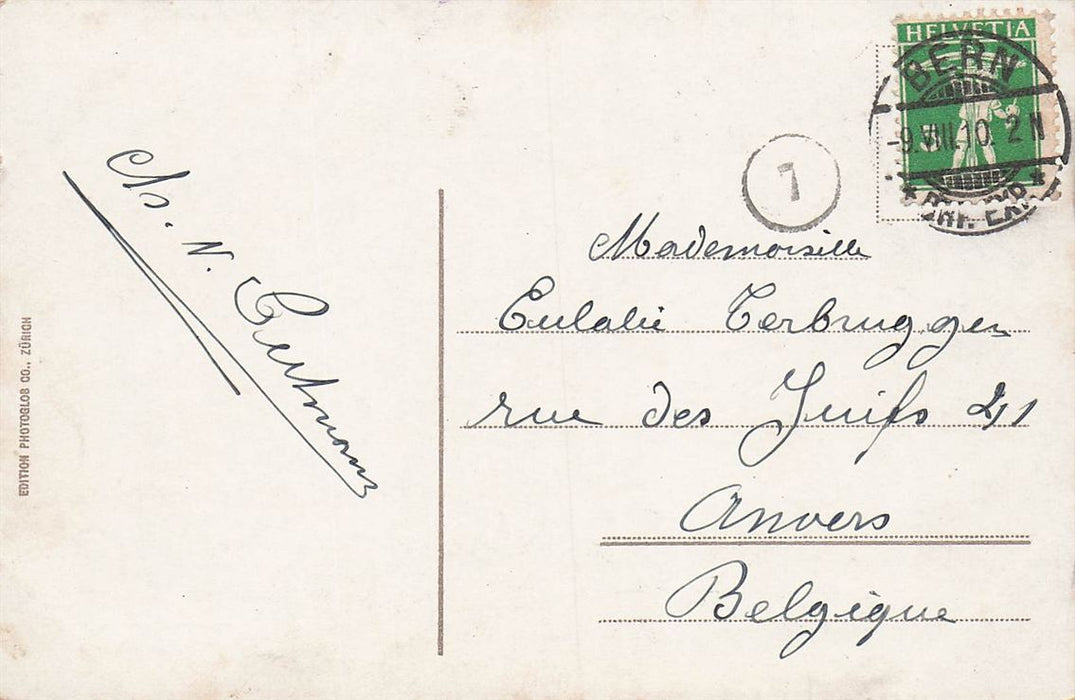 HELVETIA
BERN
-9.VIII.10. 2 N
BHF. EXP.
7
Mademoiselle
Eulalie Terbruggen
rue des Juifs 21
Anvers
Belgique
N.
EDITION PHOTOGLOB CO., ZÜRICH